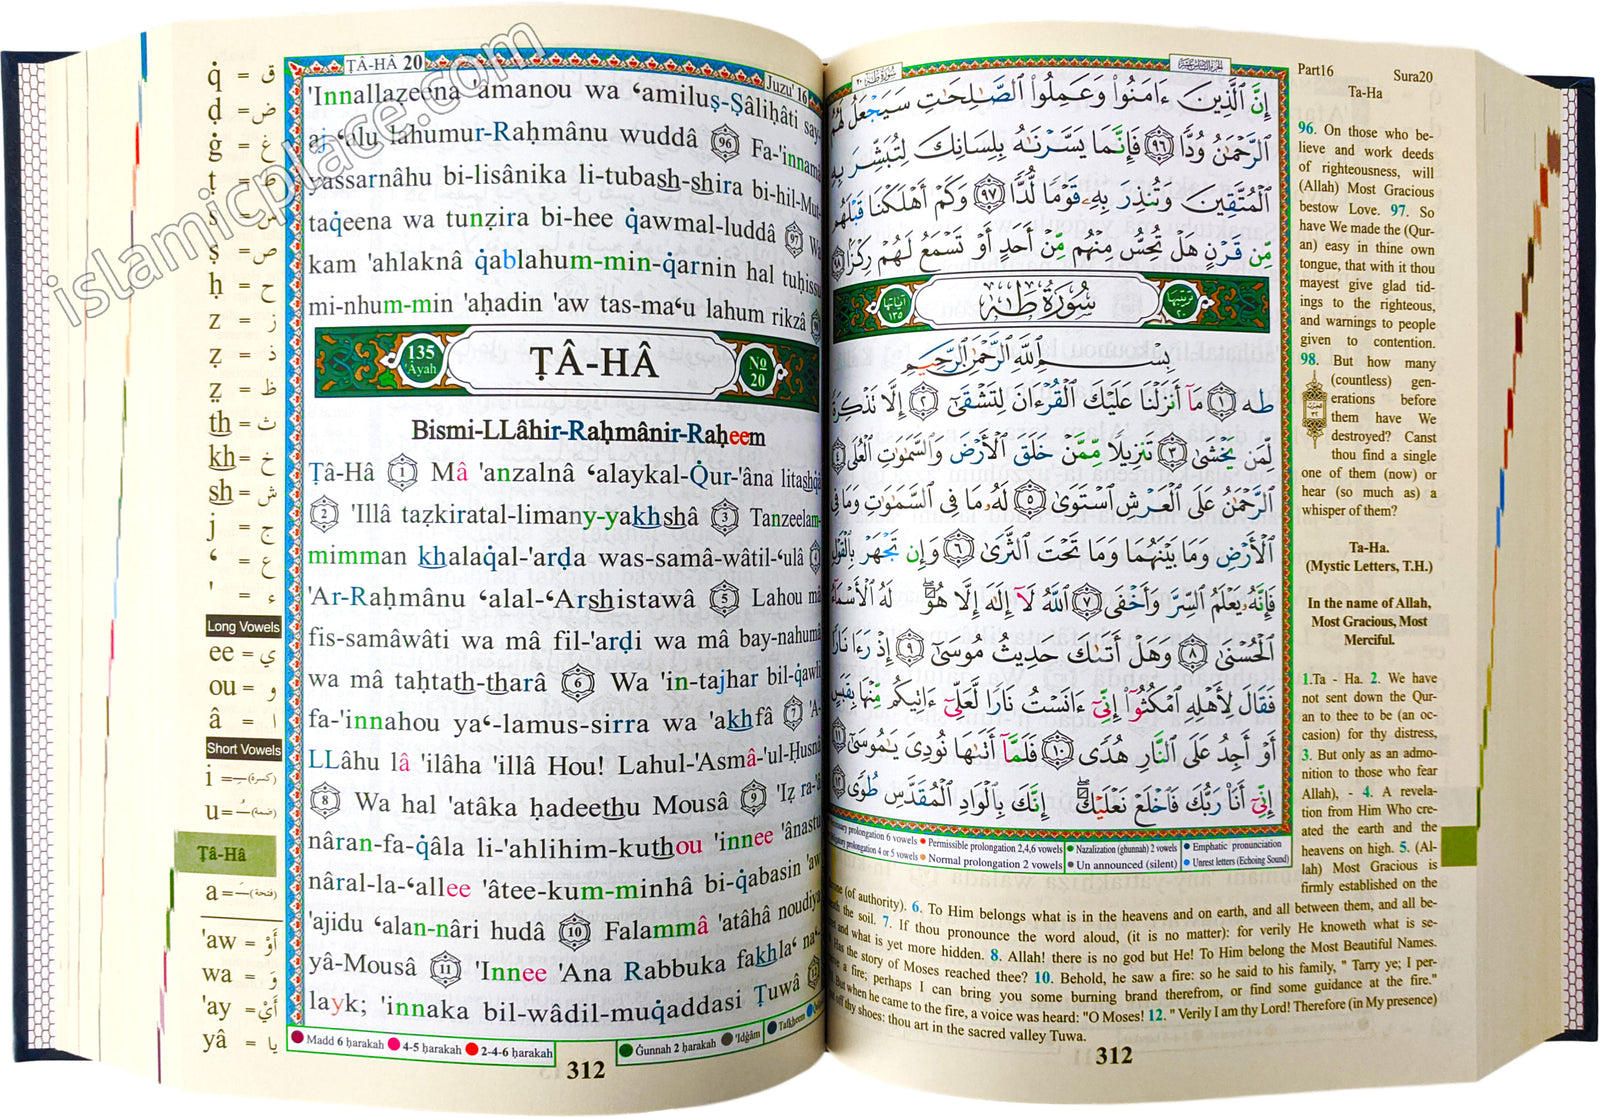 islamicplace.com
q̇ = ق
ḍ = ض
ġ = غ
ṭ = ط
s = س
ṣ = ص
ḥ = ح
z = ز
ẓ = ذ
ẓ = ظ
th = ث
kh = خ
sh = ش
j = ج
‘ = ع
' = ء
Long Vowels
ee = ي
ou = و
â = ا
Short Vowels
i = ـِ (كسرة)
u = ـُ (ضمة)
Ṭâ-Hâ
a = ـَ (فتحة)
'aw = أَوْ
wa = وَ
'ay = أَيْ
yâ = يا
ṬÂ-HÂ 20
Juzu' 16
'Innallazeena 'amanou wa ‘amiluṣ-Ṣâliḥâti say-
aj-‘alu lahumur-Raḥmânu wuddâ 96 Fa-'innamâ
yassarnâhu bi-lisânika li-tubash-shira bi-hil-Mut-
taq̇eena wa tunẓira bi-hee q̇awmal-luddâ 97 Wa
kam 'ahlaknâ q̇ablahum-min-q̇arnin hal tuḥissu
mi-nhum-min 'aḥadin 'aw tas-ma‘u lahum rikzâ 98
135 'Âyah
ṬÂ-HÂ
No 20
Bismi-LLâhir-Raḥmânir-Raḥeem
Ṭâ-Hâ 1 Mâ 'anzalnâ ‘alaykal-Q̇ur-'âna litashq̇â
2 'Illâ taẓkiratal-limany-yakhshâ 3 Tanzeelam-
mimman khalaq̇al-'arḍa was-samâ-wâtil-‘ulâ 4
'Ar-Raḥmânu ‘alal-‘Arshistawâ 5 Lahou mâ
fis-samâwâti wa mâ fil-'arḍi wa mâ bay-nahumâ
wa mâ taḥtath-tharâ 6 Wa 'in-tajhar bil-q̇awli
fa-'innahou ya‘-lamus-sirra wa 'akhfâ 7 'A-
LLâhu lâ 'ilâha 'illâ Hou! Lahul-'Asmâ-'ul-Ḥusnâ
8 Wa hal 'atâka ḥadeethu Mousâ 9 'Iẓ ra-'â
nâran-fa-q̇âla li-'ahlihim-kuthou 'innee 'ânastu
nâral-la-‘allee 'âtee-kum-minhâ bi-q̇abasin 'aw
'ajidu ‘alan-nâri hudâ 10 Falammâ 'atâhâ noudiya
yâ-Mousâ 11 'Innee 'Ana Rabbuka fakhla‘ na‘-
layk; 'innaka bil-wâdil-muq̇addasi Ṭuwâ 12
Madd 6 ḥarakah 4-5 ḥarakah 2-4-6 ḥarakah
Ġunnah 2 ḥarakah 'Idġâm Tafkheem
312
سورة طه ٢٠
الجزء السادس عشر
إِنَّ الَّذِينَ ءَامَنُوا وَعَمِلُوا الصَّالِحَاتِ سَيَجْعَلُ لَهُمُ
الرَّحْمَنُ وُدًّا ٩٦ فَإِنَّمَا يَسَّرْنَاهُ بِلِسَانِكَ لِتُبَشِّرَ بِهِ
الْمُتَّقِينَ وَتُنذِرَ بِهِ قَوْمًا لُّدًّا ٩٧ وَكَمْ أَهْلَكْنَا قَبْلَهُم
مِّن قَرْنٍ هَلْ تُحِسُّ مِنْهُم مِّنْ أَحَدٍ أَوْ تَسْمَعُ لَهُمْ رِكْزًا ٩٨
ترتيبها ٢٠
سُورَةُ طه
آياتها ١٣٥
بِسْمِ اللَّهِ الرَّحْمَنِ الرَّحِيمِ
طه ١ مَا أَنزَلْنَا عَلَيْكَ الْقُرْءَانَ لِتَشْقَى ٢ إِلَّا تَذْكِرَةً
لِّمَن يَخْشَى ٣ تَنزِيلًا مِّمَّنْ خَلَقَ الْأَرْضَ وَالسَّمَوَاتِ الْعُلَى ٤
الرَّحْمَنُ عَلَى الْعَرْشِ اسْتَوَى ٥ لَهُ مَا فِي السَّمَوَاتِ وَمَا فِي
الْأَرْضِ وَمَا بَيْنَهُمَا وَمَا تَحْتَ الثَّرَى ٦ وَإِن تَجْهَرْ بِالْقَوْلِ
فَإِنَّهُ يَعْلَمُ السِّرَّ وَأَخْفَى ٧ اللَّهُ لَا إِلَهَ إِلَّا هُوَ لَهُ الْأَسْمَاءُ
الْحُسْنَى ٨ وَهَلْ أَتَاكَ حَدِيثُ مُوسَى ٩ إِذْ رَءَا نَارًا
فَقَالَ لِأَهْلِهِ امْكُثُوا إِنِّي ءَانَسْتُ نَارًا لَّعَلِّي ءَاتِيكُم مِّنْهَا بِقَبَسٍ
أَوْ أَجِدُ عَلَى النَّارِ هُدًى ١٠ فَلَمَّا أَتَاهَا نُودِيَ يَامُوسَى ١١
إِنِّي أَنَا رَبُّكَ فَاخْلَعْ نَعْلَيْكَ إِنَّكَ بِالْوَادِ الْمُقَدَّسِ طُوًى ١٢
prolongation 6 vowels Permissible prolongation 2,4,6 vowels Nazalization (ghunnah) 2 vowels Emphatic pronunciation
prolongation 4 or 5 vowels Normal prolongation 2 vowels Un announced (silent) Unrest letters (Echoing Sound)
Part16 Sura20
Ta-Ha
96. On those who be-
lieve and work deeds
of righteousness, will
(Allah) Most Gracious
bestow Love. 97. So
have We made the (Qur-
an) easy in thine own
tongue, that with it thou
mayest give glad tid-
ings to the righteous,
and warnings to people
given to contention.
98. But how many
(countless) gen-
erations before
them have We
destroyed? Canst
thou find a single
one of them (now) or
hear (so much as) a
whisper of them?
Ta-Ha.
(Mystic Letters, T.H.)
In the name of Allah,
Most Gracious, Most
Merciful.
1.Ta - Ha. 2. We have
not sent down the Qur-
an to thee to be (an oc-
casion) for thy distress,
3. But only as an admo-
nition to those who fear
Allah), - 4. A revela-
tion from Him Who cre-
ated the earth and the
heavens on high. 5. (Al-
lah) Most Gracious is
firmly established on the
(of authority). 6. To Him belongs what is in the heavens and on earth, and all between them, and all be-
the soil. 7. If thou pronounce the word aloud, (it is no matter): for verily He knoweth what is se-
and what is yet more hidden. 8. Allah! there is no god but He! To Him belong the Most Beautiful Names.
Has the story of Moses reached thee? 10. Behold, he saw a fire: so he said to his family, " Tarry ye; I per-
a fire; perhaps I can bring you some burning brand therefrom, or find some guidance at the fire."
But when he came to the fire, a voice was heard: "O Moses! 12. " Verily I am thy Lord! Therefore (in My presence)
off thy shoes: thou art in the sacred valley Tuwa.
312